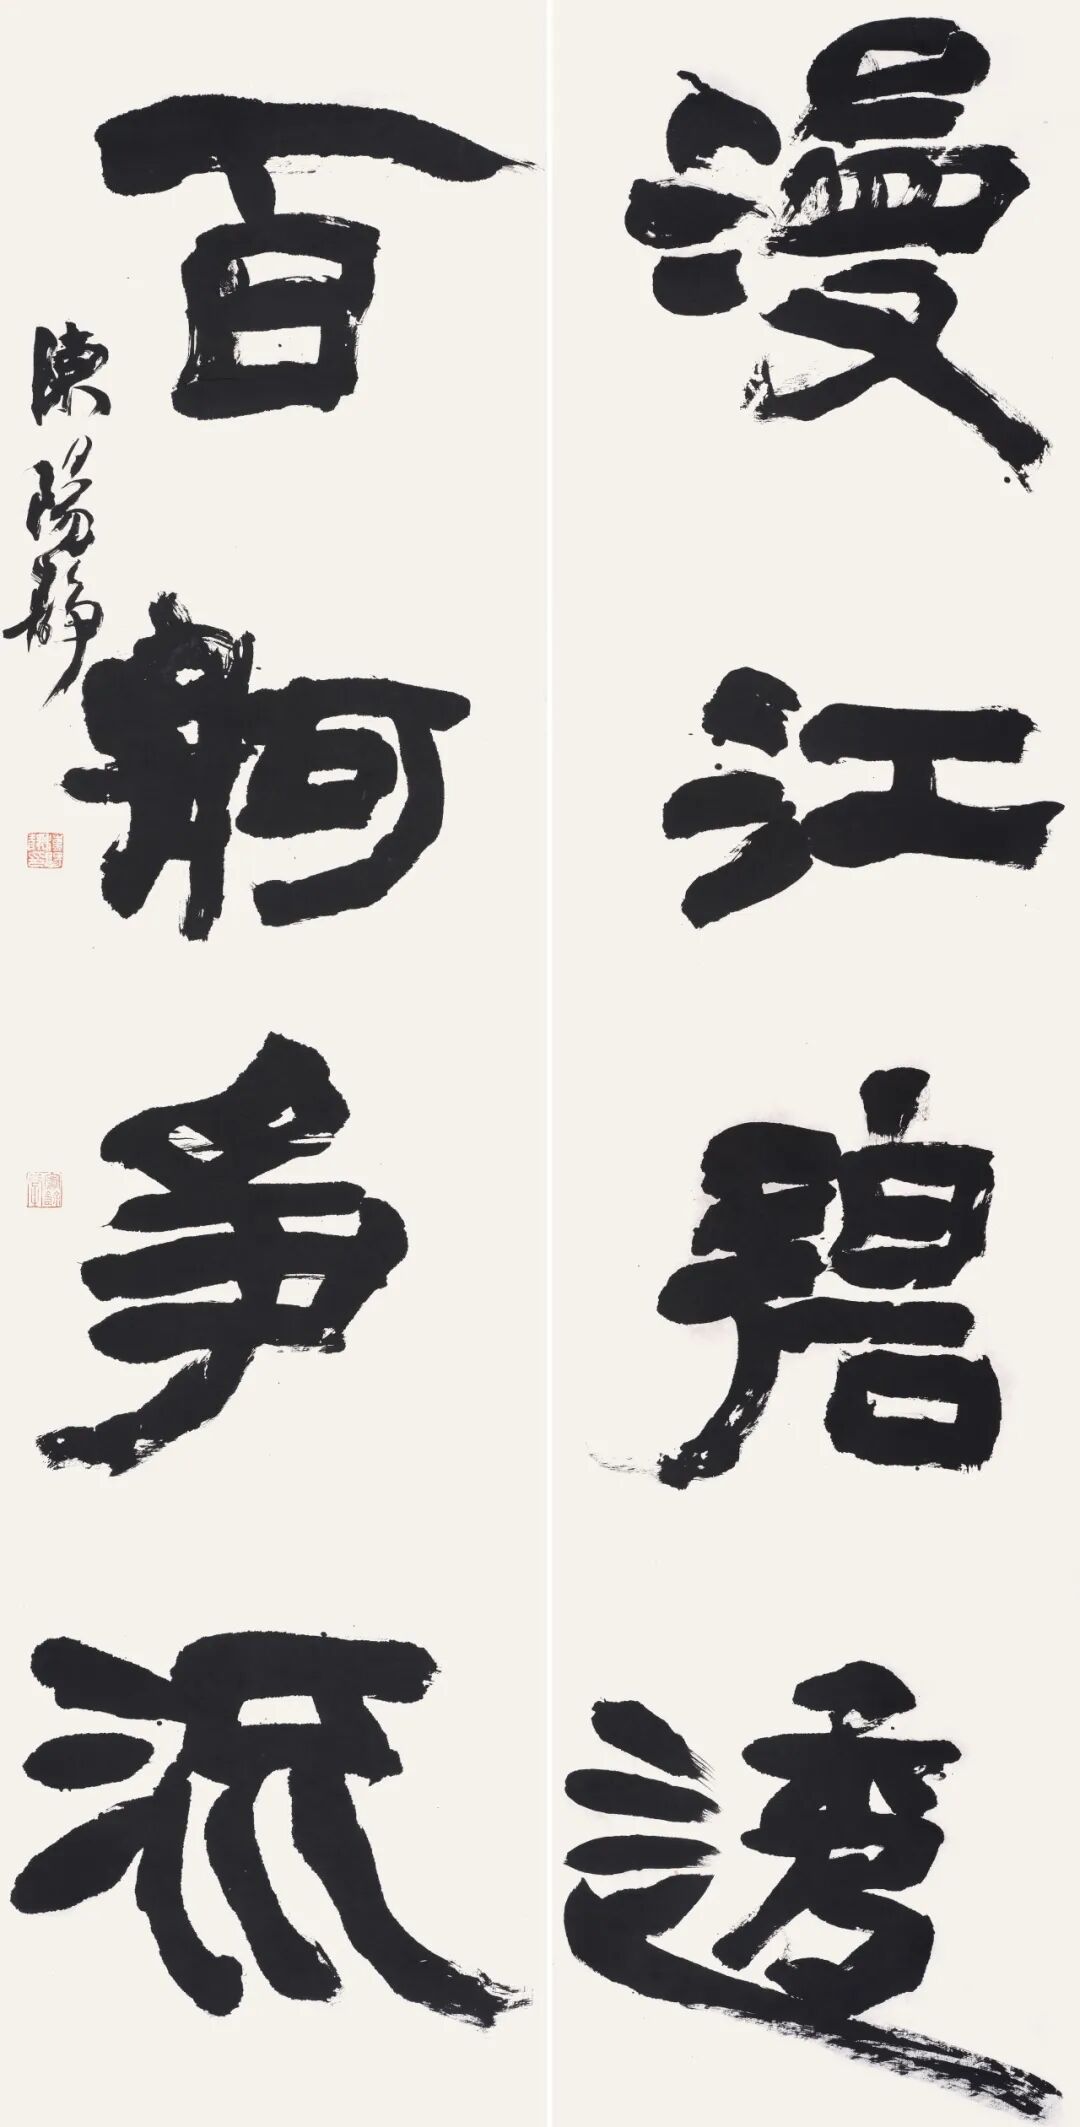 漫江碧透
百舸争流
陈阳静